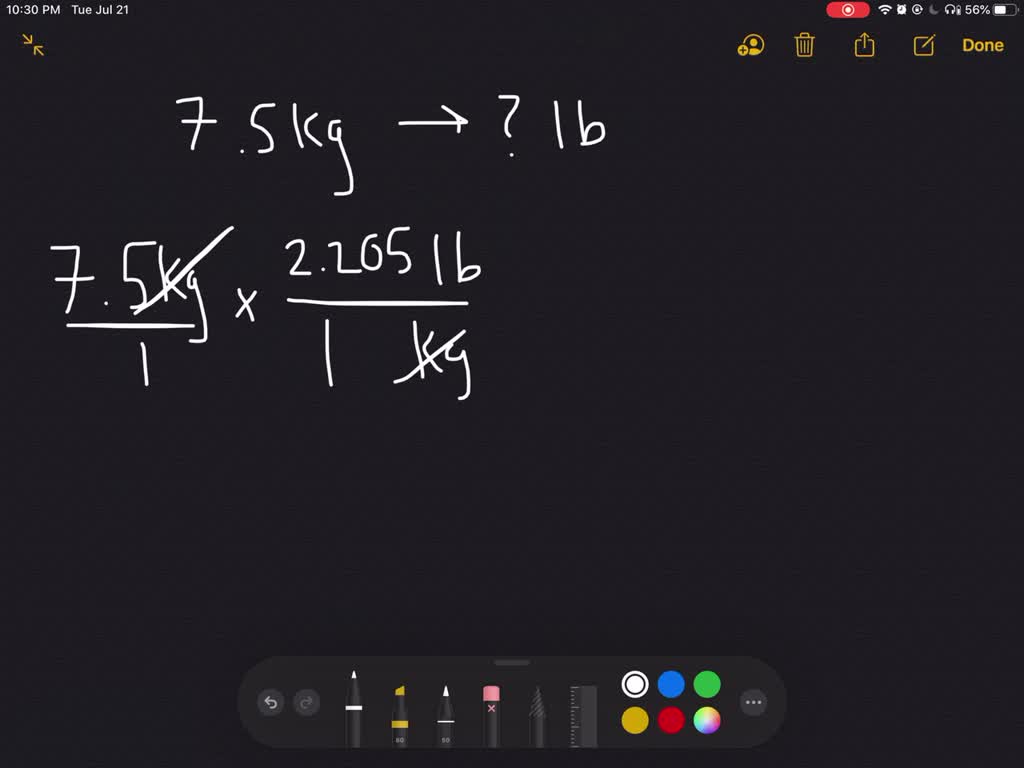 10:30 PM Tue Jul 21 56%
Done
7.5kg → ? lb
7.5kg x 2.205 lb
1 1 kg
80 50